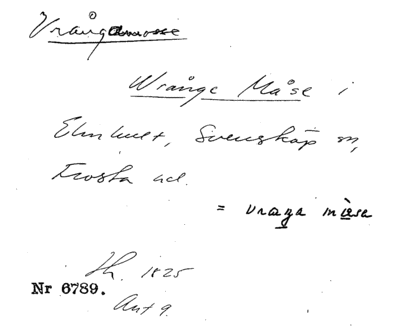 Vrångamosse
Wrånge Måse i
Elmhult, Svensköp sn,
Frosta hd.
= vraŋa mɯsa
Jh. 1825
Nr 6789.
Ant 9.